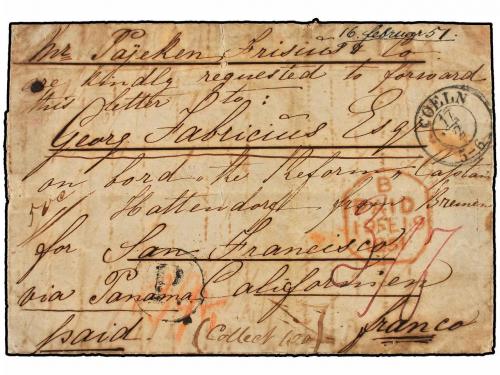 16. februar 51.
Mr. Pajeken Frisius & Co
are kindly requested to forward
this letter to:
Georg Fabricius Esq
on bord "the Reform" Captain
Hattendorf from Bremen
for San Francisco
via Panama Californien
paid. (Collect 100) franco
COELN
17
5-6
B
PAID
1851
P